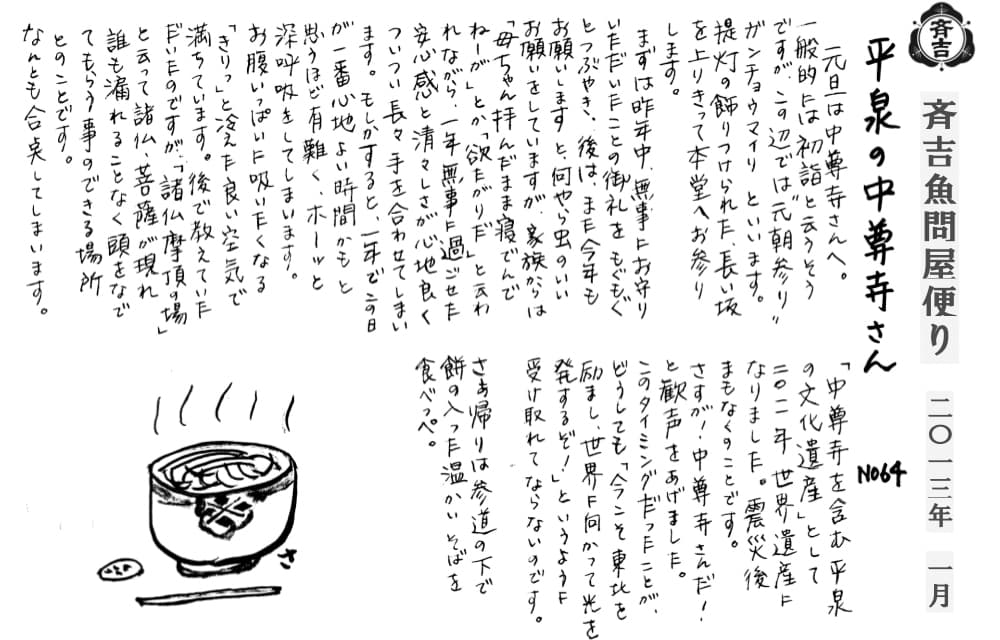 斉吉
斉吉魚問屋便り 二〇一三年 一月
平泉の中尊寺さん No64
元旦は中尊寺さんへ。
一般的には初詣と云うそう
ですが、この辺では"元朝参り"
ガンチョウマイリ といいます。
提灯の飾りつけられた、長い坂
を上りきって本堂へお参り
します。
まずは昨年中、無事にお守り
いただいたことの御礼をもぐもぐ
とつぶやき、後は、また今年も
お願いしますと、何やら虫のいい
お願いをしていますが、家族からは
「母ちゃん拝んだまま寝でんで
ねーが」とか「欲たがりだ」と云わ
れながら、一年無事に過ごせた
安心感と清々しさが心地良く
ついつい長々手を合わせてしまい
ます。もしかすると、一年でこの日
が一番心地よい時間かもと
思うほど有難く、ホーッと
深呼吸をしてしまいます。
お腹いっぱいに吸いたくなる
「きりっ」と冷えた良い空気で
満ちています。後で教えていた
だいたのですが、「諸仏摩頂の場」
と云って諸仏、菩薩が現れ
誰も漏れることなく頭をなで
てもらう事のできる場所
とのことです。
なんとも合点してしまいます。
「中尊寺を含む平泉
の文化遺産」として
二〇一一年世界遺産に
なりました。震災後
まもなくのことです。
さすが!中尊寺さんだ!
と歓声をあげました。
このタイミングだったことが、
どうしても「今こそ東北を
励まし、世界に向かって光を
発するぞ!」というように
受け取れてならないのです。
さあ帰りは参道の下で
餅の入った温かいそばを
食べっぺ。
さ